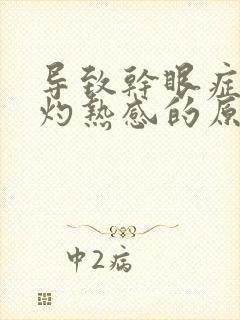 导致幹眼症
灼热感的原
中2病